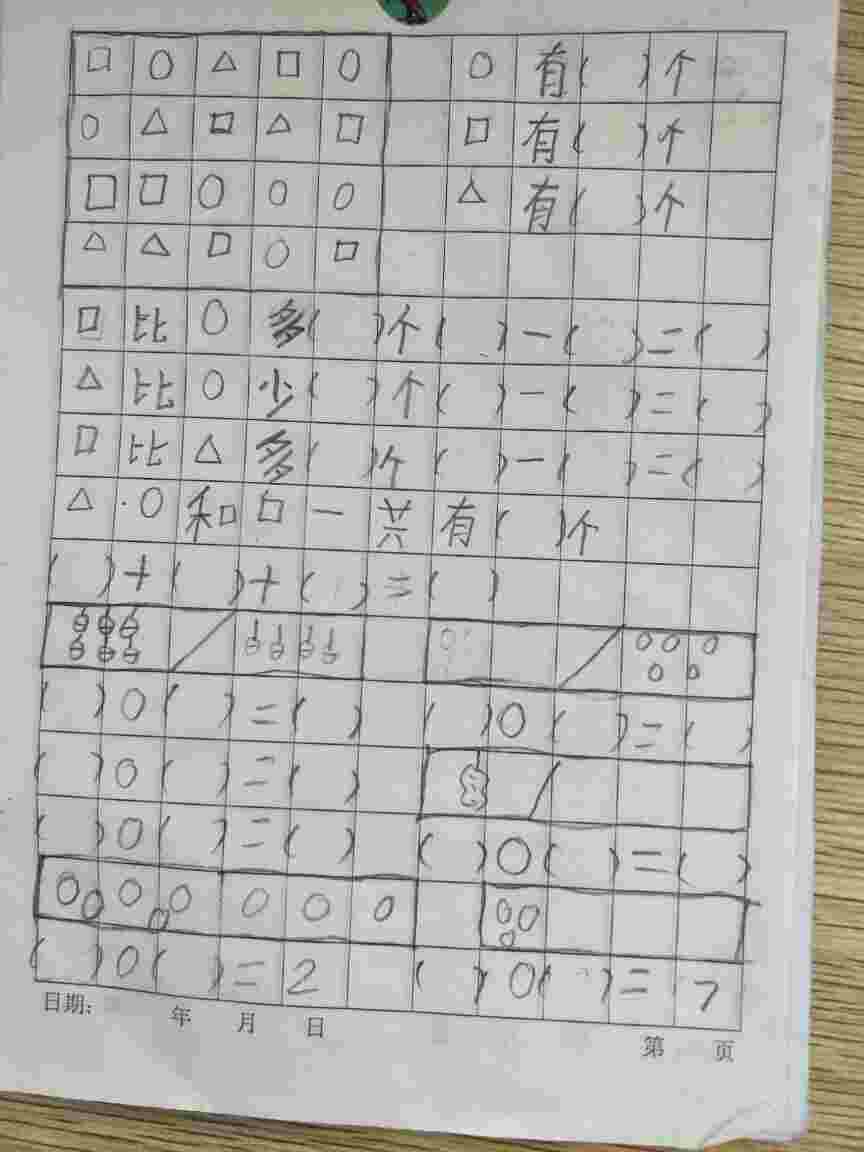 □ ○ △ □ ○ ○ 有( )个
○ △ □ △ □ □ 有( )个
□ □ ○ ○ ○ △ 有( )个
△ △ □ ○ □
□ 比 ○ 多( )个( )-( )=( )
△ 比 ○ 少( )个( )-( )=( )
□ 比 △ 多( )个( )-( )=( )
△·○和□一共有( )个
( )+( )+( )=( )
( )○( )=( ) ( )○( )=( )
( )○( )=( )
( )○( )=( ) ( )○( )=( )
( )○( )=2 ( )○( )=7
日期: 年 月 日
第 页